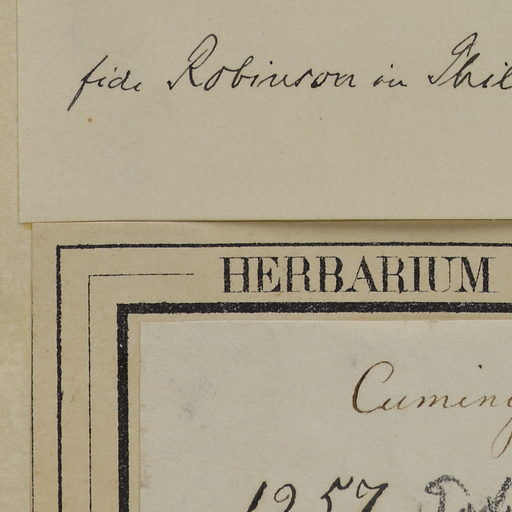 fide Robinson in Phil
HERBARIUM
Cuming
1257